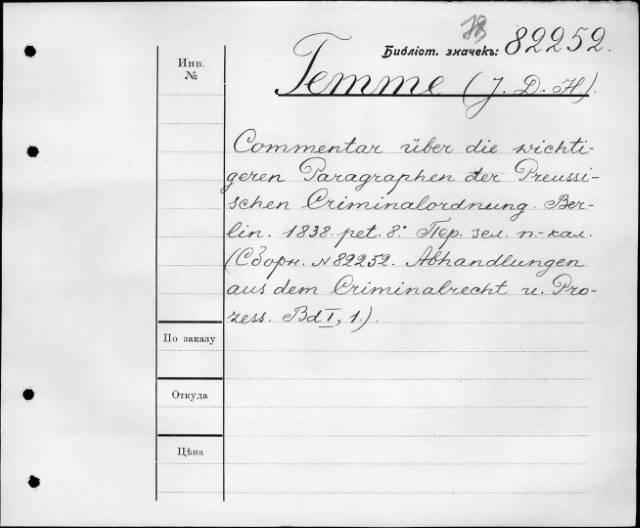 Библіот. значекъ: 82252.
Инв.
№
Temme (J. D. H).
Commentar über die wichti-
geren Paragraphen der Preussi-
schen Criminalordnung. Ber-
lin. 1838. pet. 8.° Пер. зел. п.-кал.
(Сборн. №82252. Abhandlungen
aus dem Criminalrecht u. Pro-
zess. Bd I, 1.).
По заказу
Откуда
Цѣна